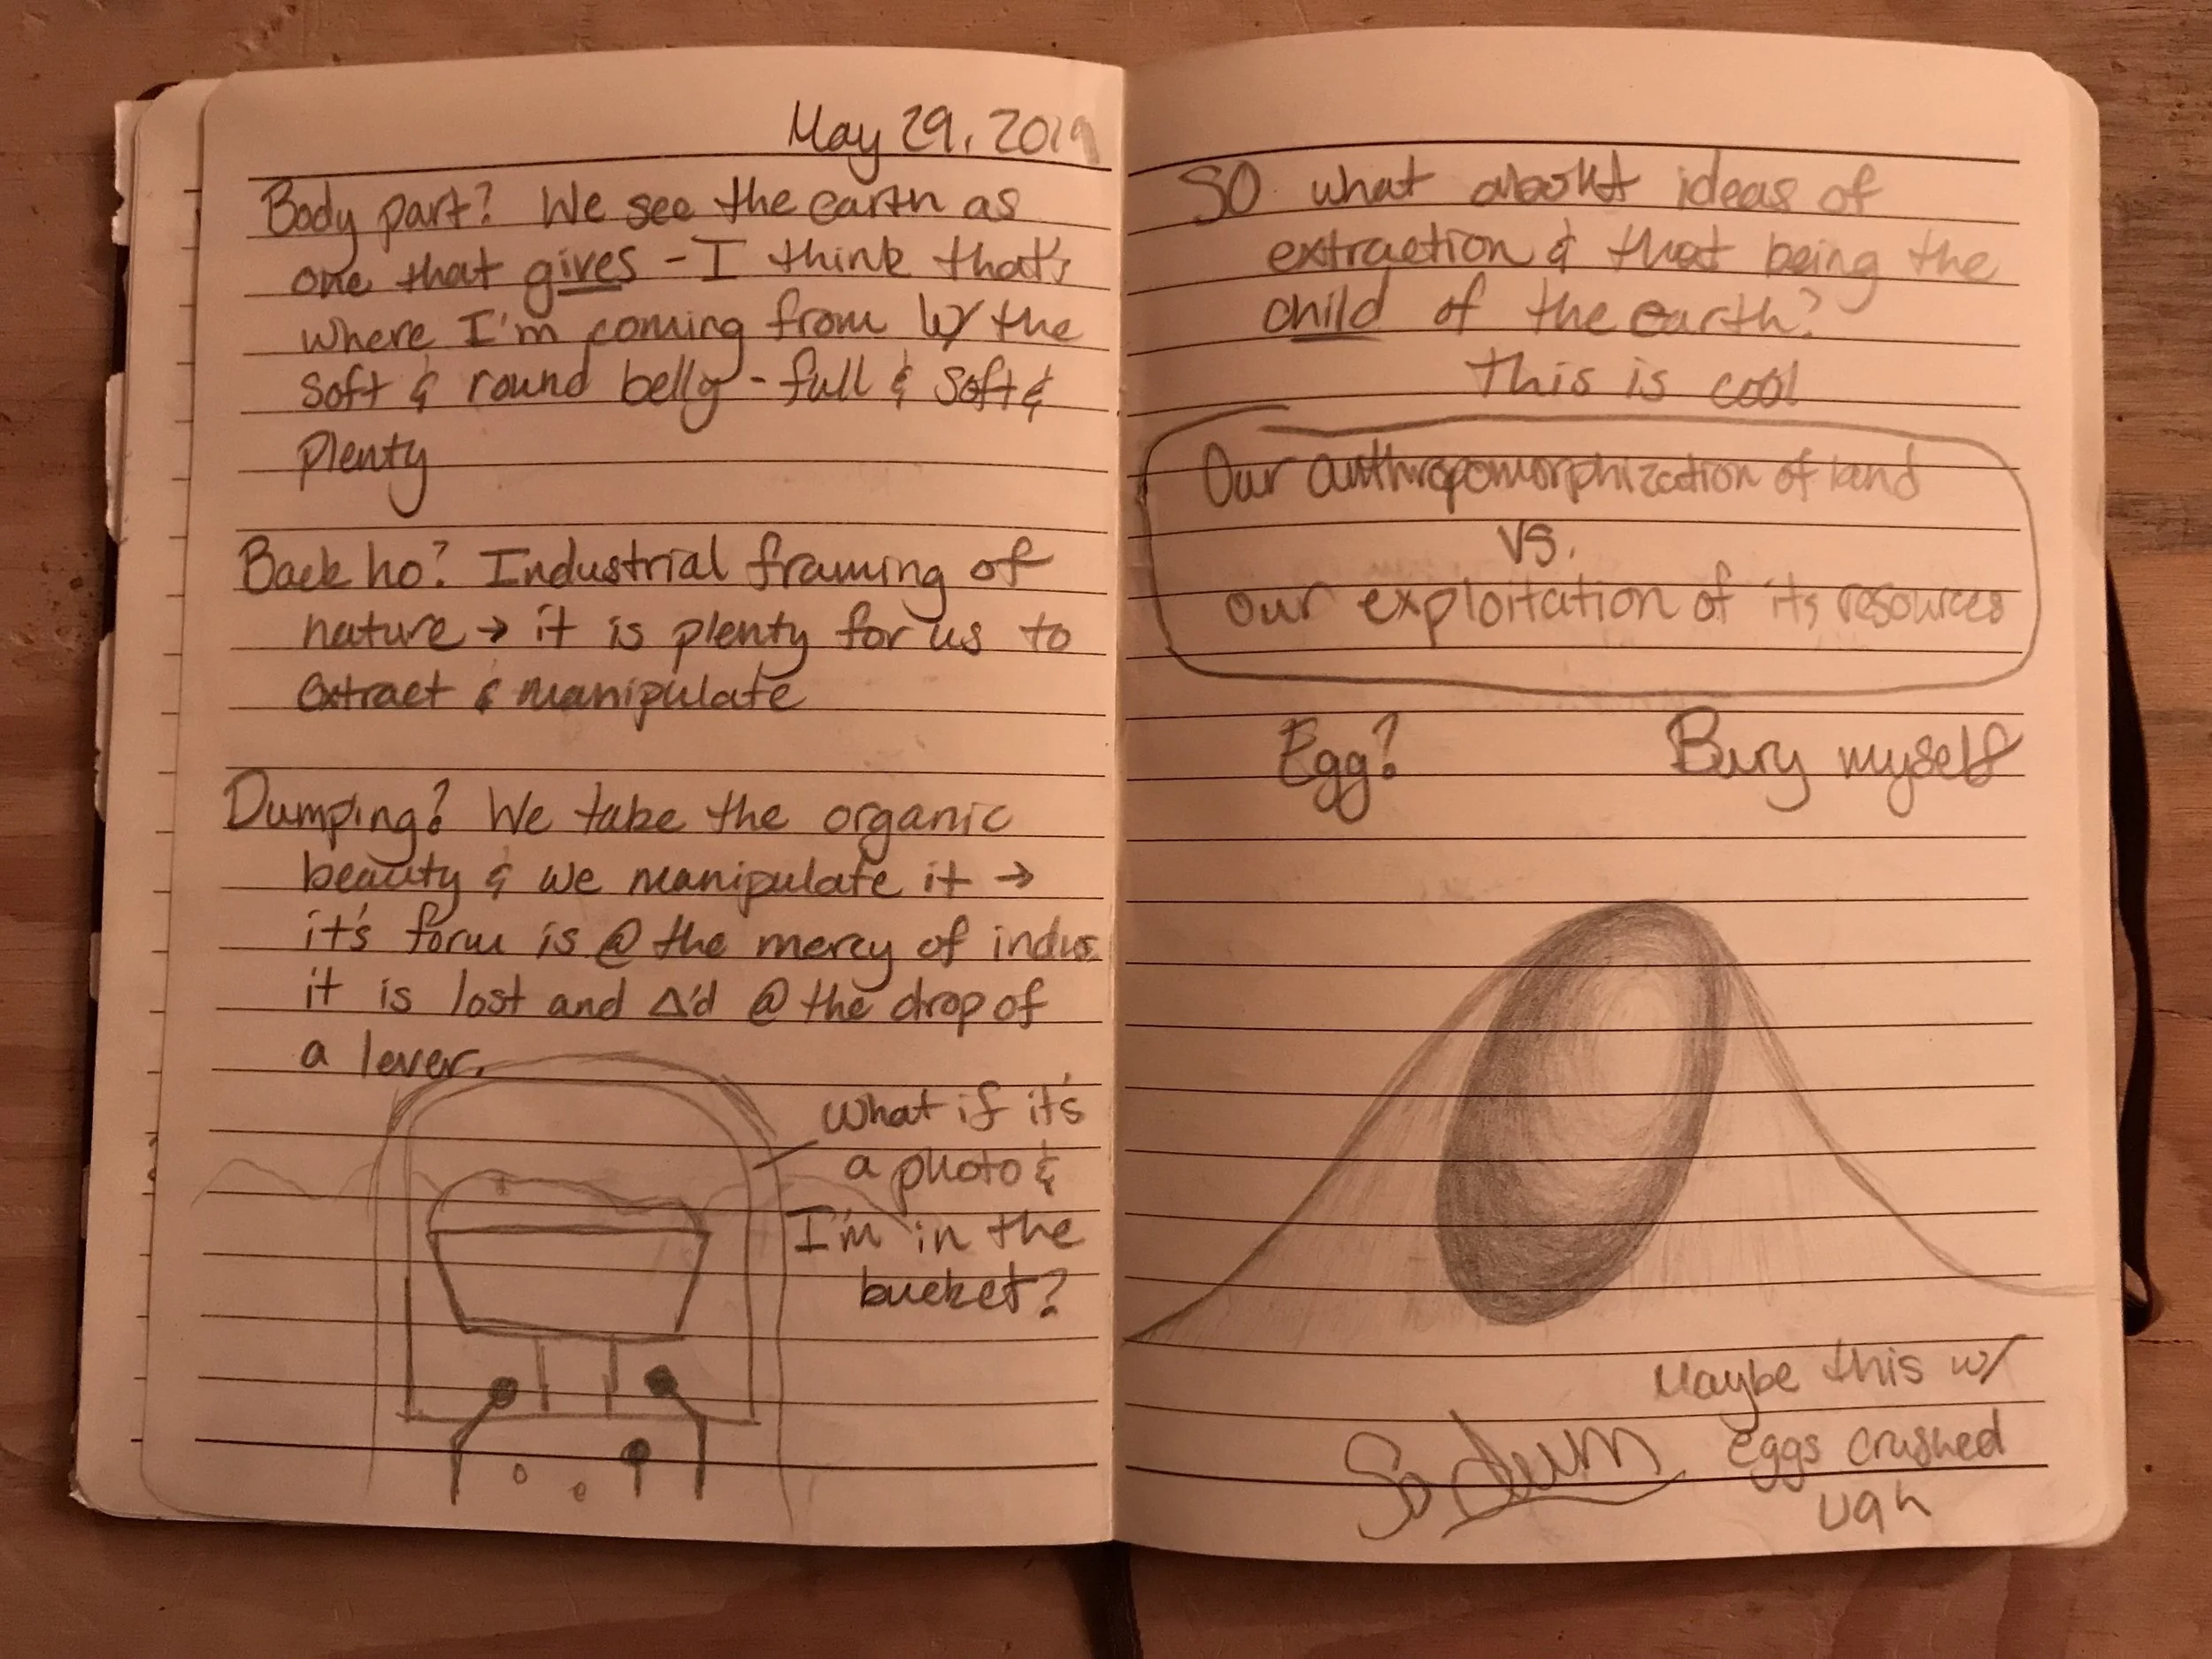 May 29, 2019
Body part? We see the earth as
one that gives - I think that's
where I'm coming from w/ the
soft & round belly - full & soft &
plenty
Back ho? Industrial framing of
nature → it is plenty for us to
extract & manipulate
Dumping? We take the organic
beauty & we manipulate it →
it's form is @ the mercy of indus.
it is lost and Δ'd @ the drop of
a lever.
What if it's
a photo &
I'm in the
bucket?
SO what about ideas of
extraction & that being the
child of the earth?
this is cool
Our anthropomorphization of land
VS.
our exploitation of its resources
Egg? Bury myself
Maybe this w/
eggs crushed
ugh
So dum